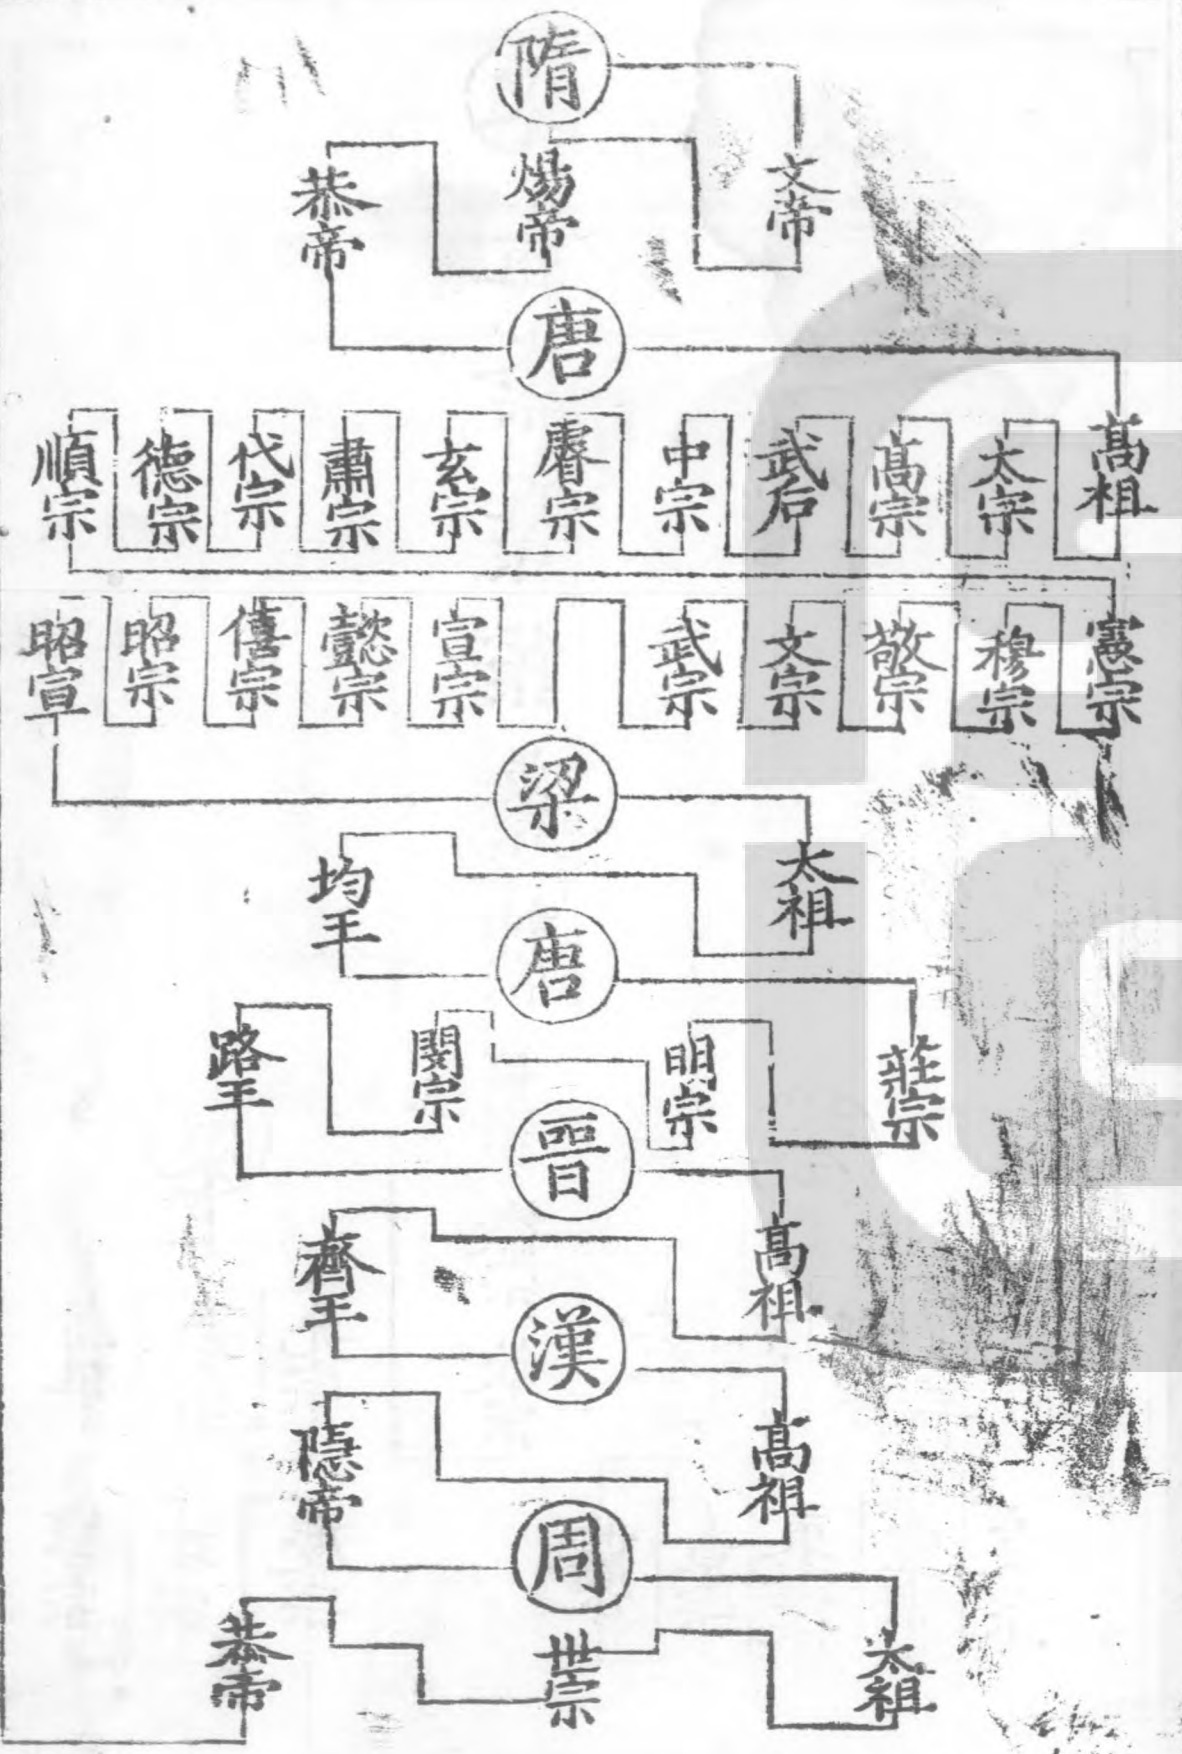 隋
文帝
煬帝
恭帝
唐
高祖
太宗
高宗
武后
中宗
睿宗
玄宗
肅宗
代宗
德宗
順宗
憲宗
穆宗
敬宗
文宗
武宗
宣宗
懿宗
僖宗
昭宗
昭宣
梁
太祖
均王
唐
莊宗
明宗
閔宗
路王
晉
高祖
齊王
漢
高祖
隱帝
周
太祖
世宗
恭帝